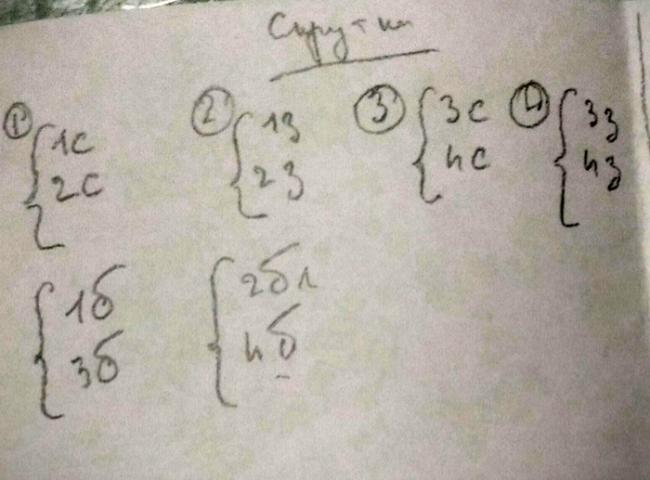 Скрутки
① 1с ② 1з ③ 3с ④ 3з
2с 2з 4с 4з
1б 2бл
3б 4б